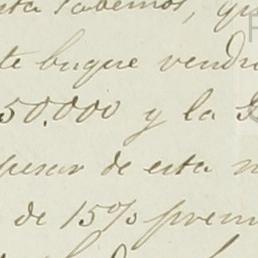 sabemos, qu
te buque vendr
50.000 y la
pesar de esta
de 15% prem